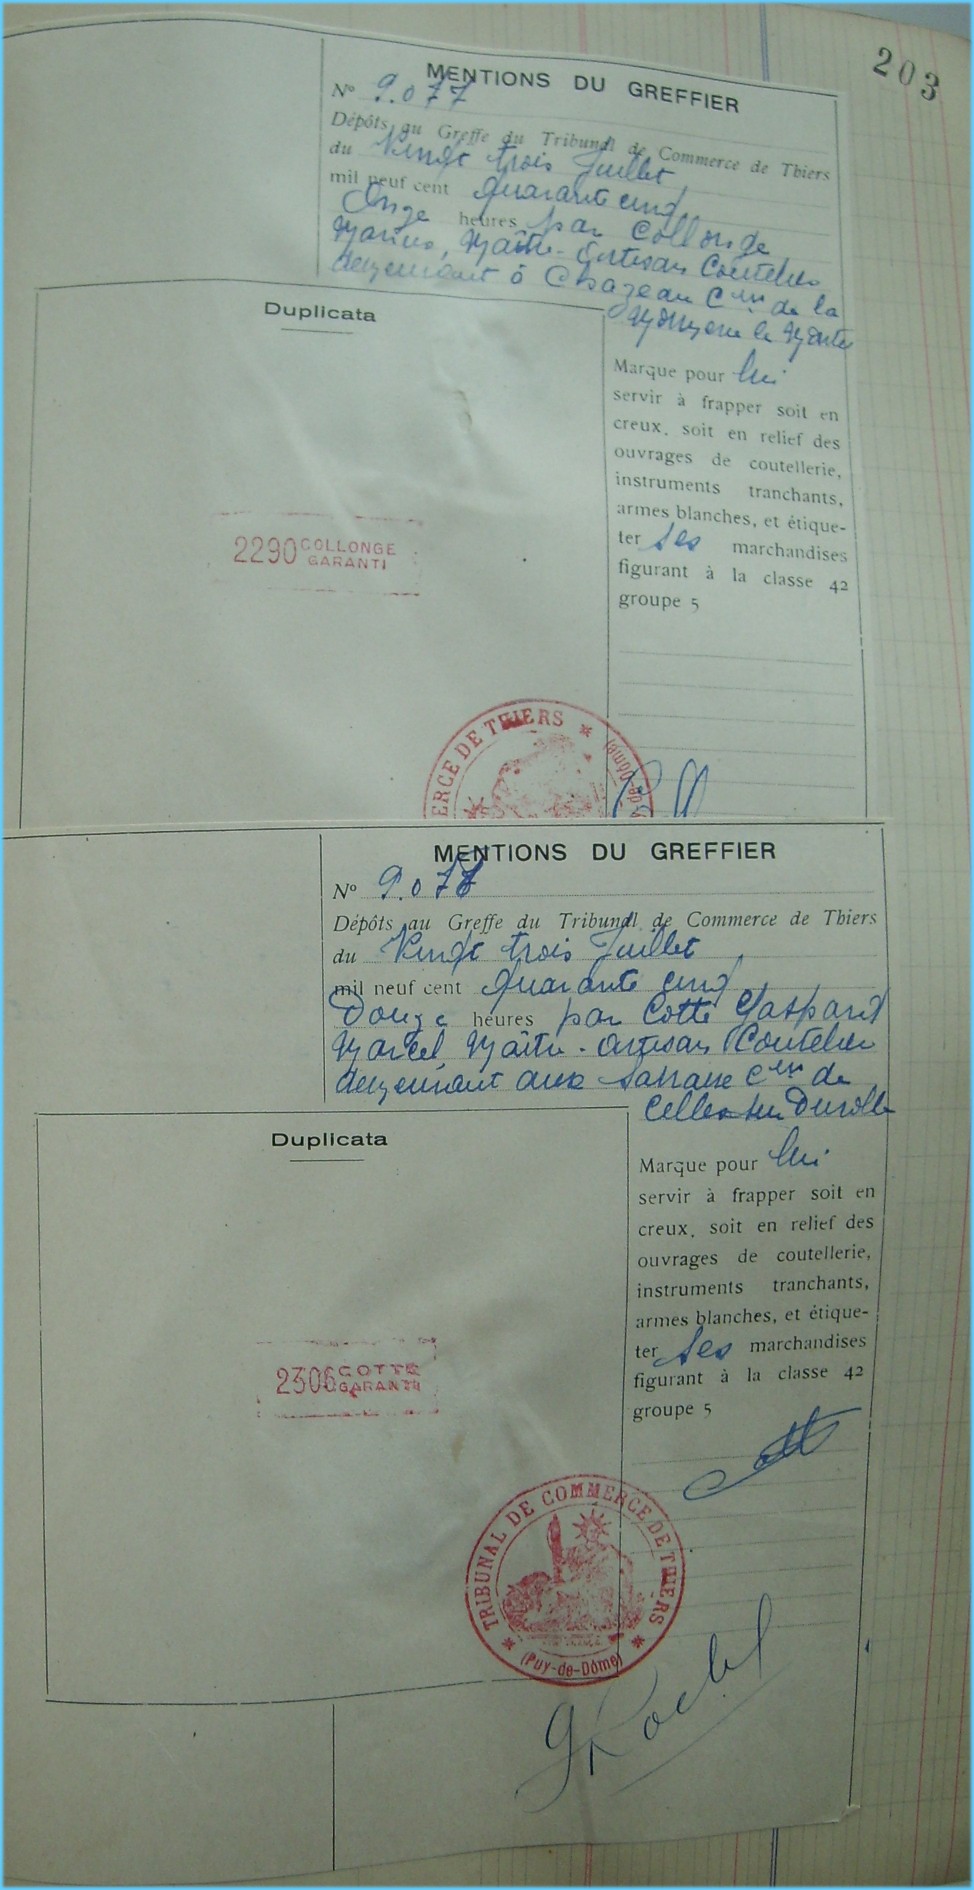 203
MENTIONS DU GREFFIER
N° 9.077
Dépôts au Greffe du Tribunal de Commerce de Thiers
du Vingt trois Juillet
mil neuf cent Quarante cinq
Onze heures par Collonge
Marius, Maître-Artisan Coutelier
demeurant à Chazeau Cne de la
Monnerie le Montel
Duplicata
Marque pour lui
servir à frapper soit en
creux, soit en relief des
ouvrages de coutellerie,
instruments tranchants,
armes blanches, et étique-
ter ses marchandises
figurant à la classe 42
groupe 5
2290 COLLONGE
GARANTI
ERCE DE THIERS *
MENTIONS DU GREFFIER
N° 9.078
Dépôts au Greffe du Tribunal de Commerce de Thiers
du Vingt trois Juillet
mil neuf cent Quarante cinq
Douze heures par Cotte Gaspard
Marcel Maître-Artisan Coutelier
demeurant aux Cne de
Celles sur Durolle
Duplicata
Marque pour lui
servir à frapper soit en
creux, soit en relief des
ouvrages de coutellerie,
instruments tranchants,
armes blanches, et étique-
ter ses marchandises
figurant à la classe 42
groupe 5
2306 COTTE
GARANTI
TRIBUNAL DE COMMERCE DE THIERS
* (Puy-de-Dôme) *